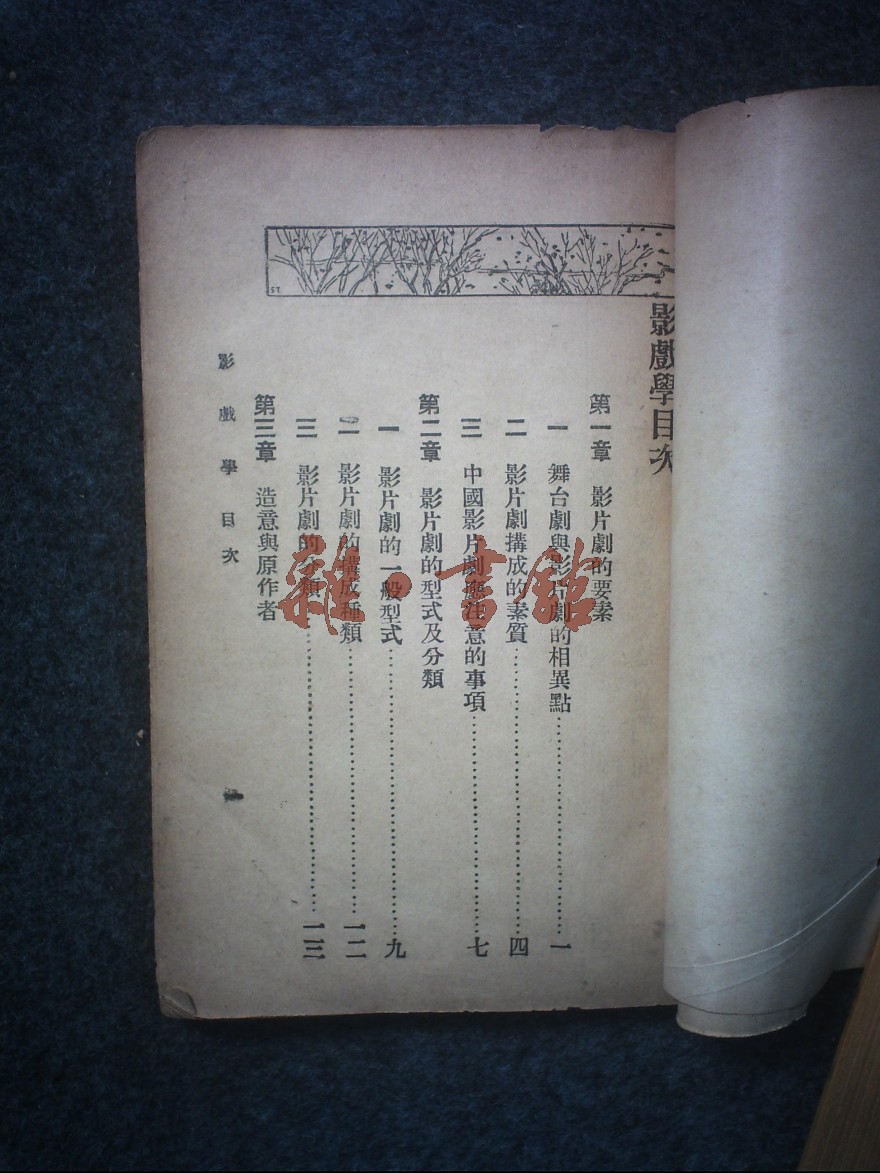 影戲學目次
第一章 影片劇的要素
一 舞台劇與影片劇的相異點……一
二 影片劇搆成的素質……四
三 中國影片劇應注意的事項……七
第二章 影片劇的型式及分類
一 影片劇的一般型式……九
二 影片劇的搆成種類……一二
三 影片劇的分類……一三
第三章 造意與原作者
影戲學目次
雜·書館